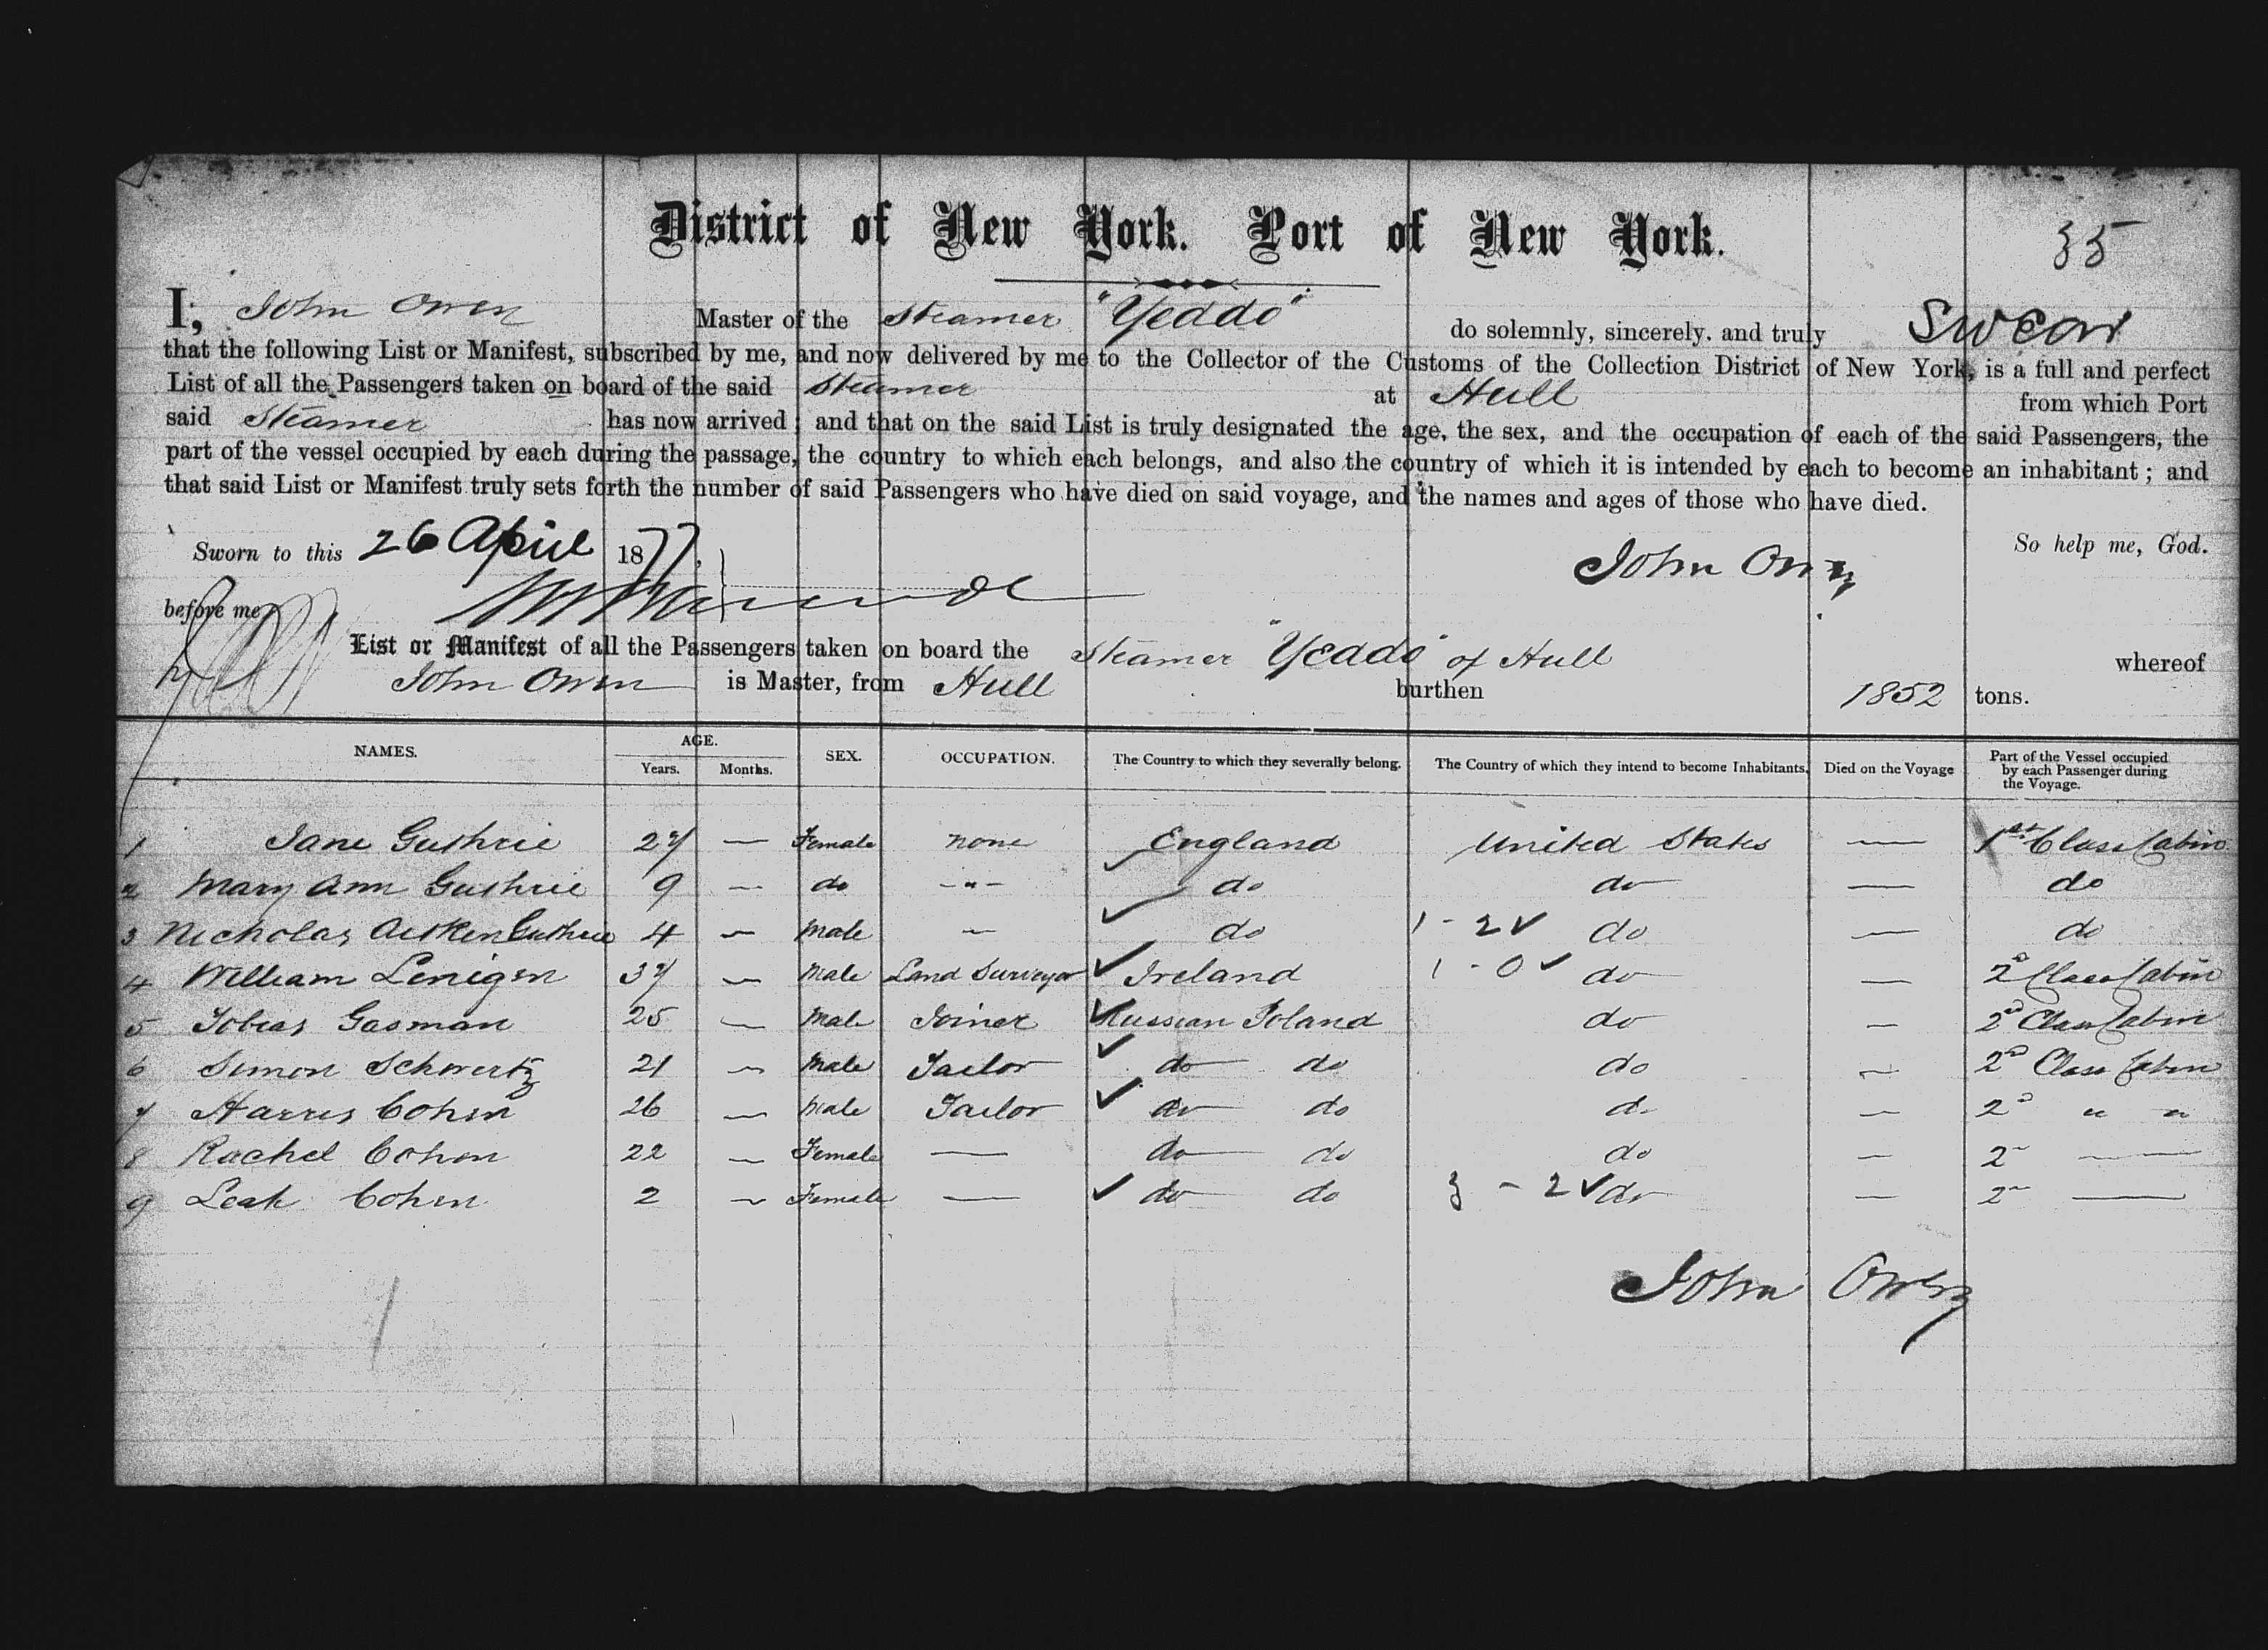 District of New York. Port of New York.
35
I, John Owen Master of the Steamer "Yeddo" do solemnly, sincerely. and truly Swear
that the following List or Manifest, subscribed by me, and now delivered by me to the Collector of the Customs of the Collection District of New York, is a full and perfect
List of all the Passengers taken on board of the said Steamer at Hull from which Port
said Steamer has now arrived; and that on the said List is truly designated the age, the sex, and the occupation of each of the said Passengers, the
part of the vessel occupied by each during the passage, the country to which each belongs, and also the country of which it is intended by each to become an inhabitant; and
that said List or Manifest truly sets forth the number of said Passengers who have died on said voyage, and the names and ages of those who have died.
So help me, God.
Sworn to this 26 April 1877. John Owen
before me
List or Manifest of all the Passengers taken on board the Steamer "Yeddo" of Hull whereof
John Owen is Master, from Hull burthen 1852 tons.
NAMES. AGE. Years. Months. SEX. OCCUPATION. The Country to which they severally belong. The Country of which they intend to become Inhabitants. Died on the Voyage Part of the Vessel occupied by each Passenger during the Voyage.
1 Jane Guthrie 27 — Female none England United States — 1st Class Cabin
2 Mary Ann Guthrie 9 — do -"- do do — do
3 Nicholas Aitken Guthrie 4 — Male — do 1 - 2 ✓ do — do
4 William Lenigen 37 — Male Land Surveyor Ireland 1 - 0 ✓ do — 2d Class Cabin
5 Tobias Gasman 25 — Male Joiner Russian Poland do — 2d Class Cabin
6 Simon Schwertz 21 — Male Tailor do do do — 2d Class Cabin
7 Harris Cohen 26 — Male Tailor do do do — 2d " "
8 Rachel Cohen 22 — Female — do do do — 2 —
9 Leah Cohen 2 — Female — do do 3 - 2 ✓ do — 2 —
John Owen